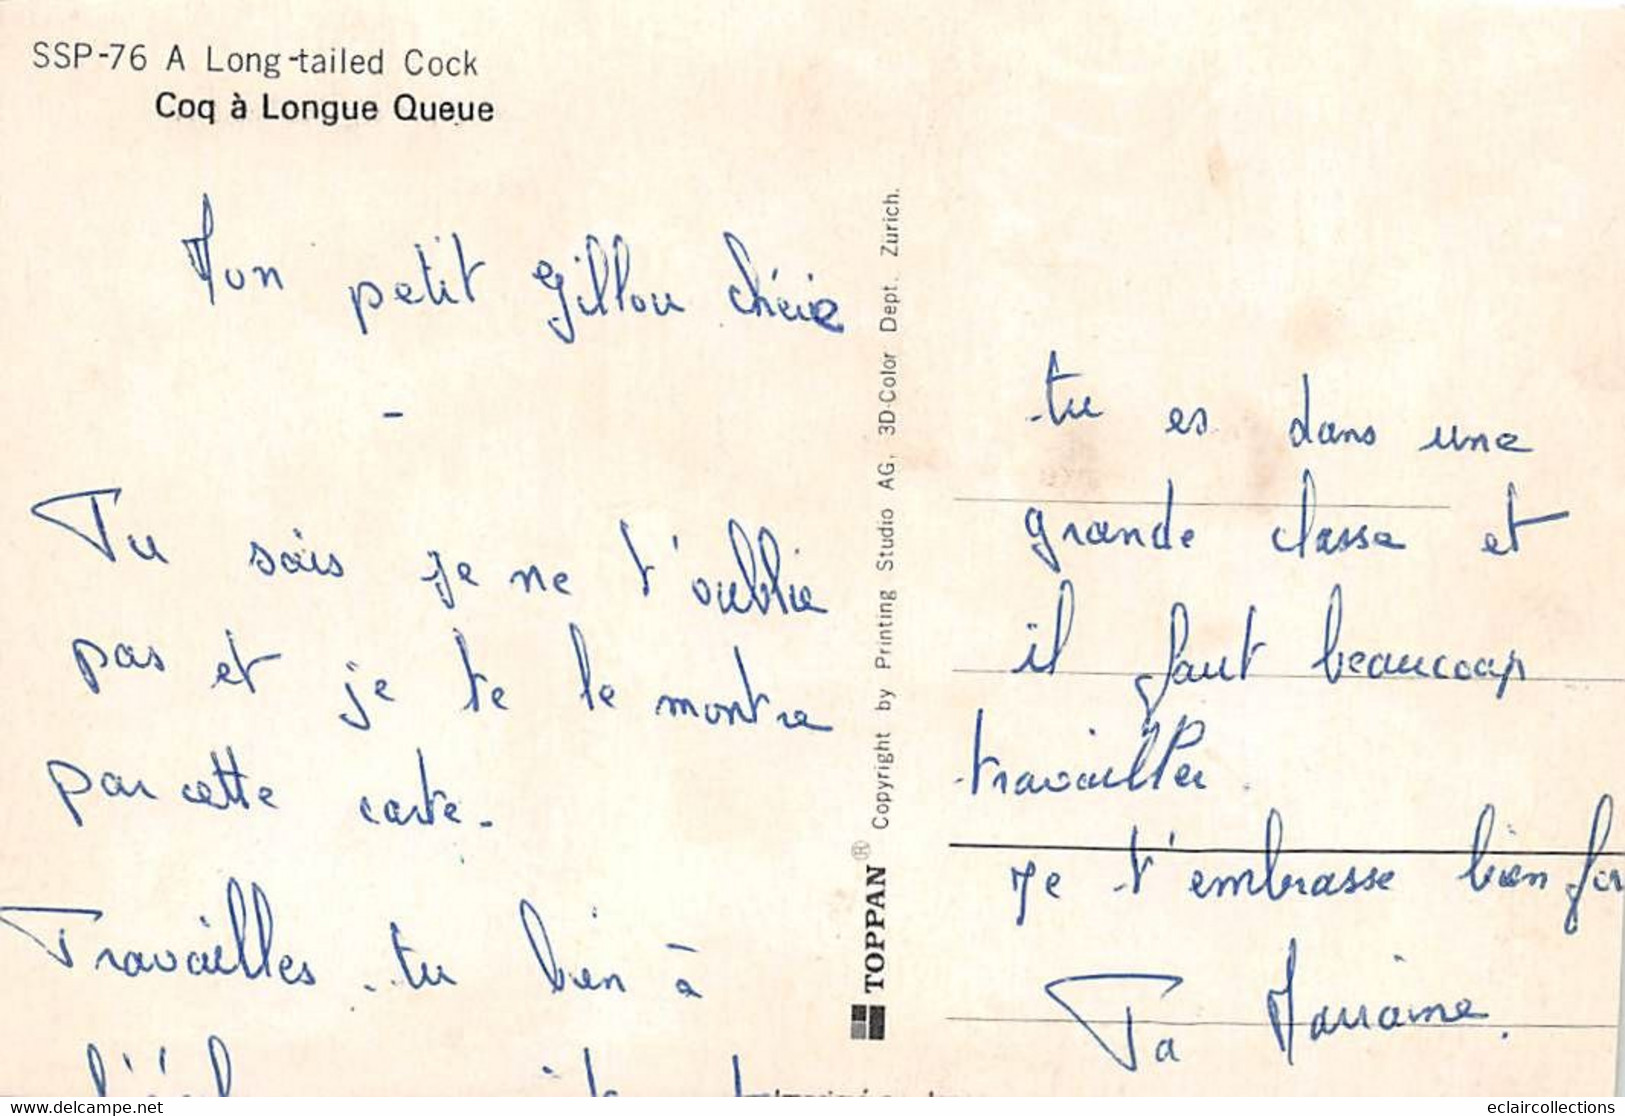 SSP-76 A Long-tailed Cock
Coq à Longue Queue
Mon petit Gillou chérie
-
Tu sais je ne t'oublie
pas et je te le montre
par cette carte.
Travailles-tu bien à
l'école
tu es dans une
grande classe et
il faut beaucoup
travailler.
Je t'embrasse bien for
Ta Marraine.
TOPPAN® Copyright by Printing Studio AG, 3D-Color Dept. Zurich.
eclaircollections